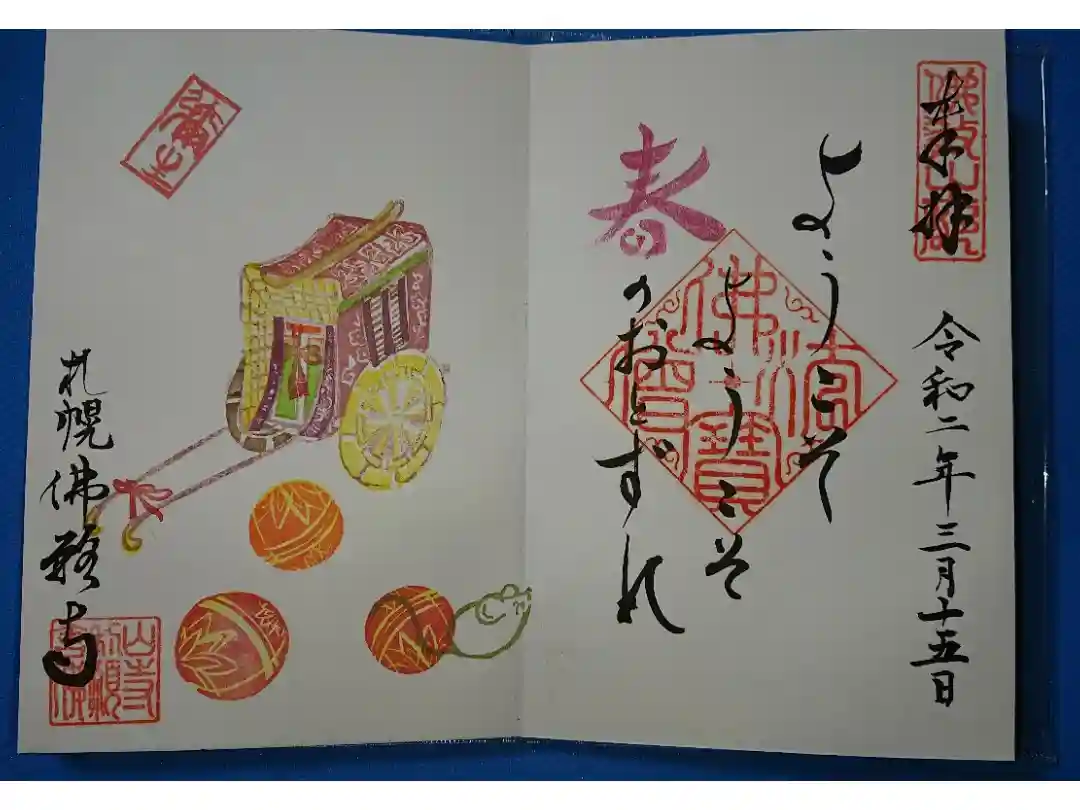 奉拝
令和二年三月十五日
ようこそ
ようこそ
春のおとずれ
佛法僧寶
札幌佛願寺